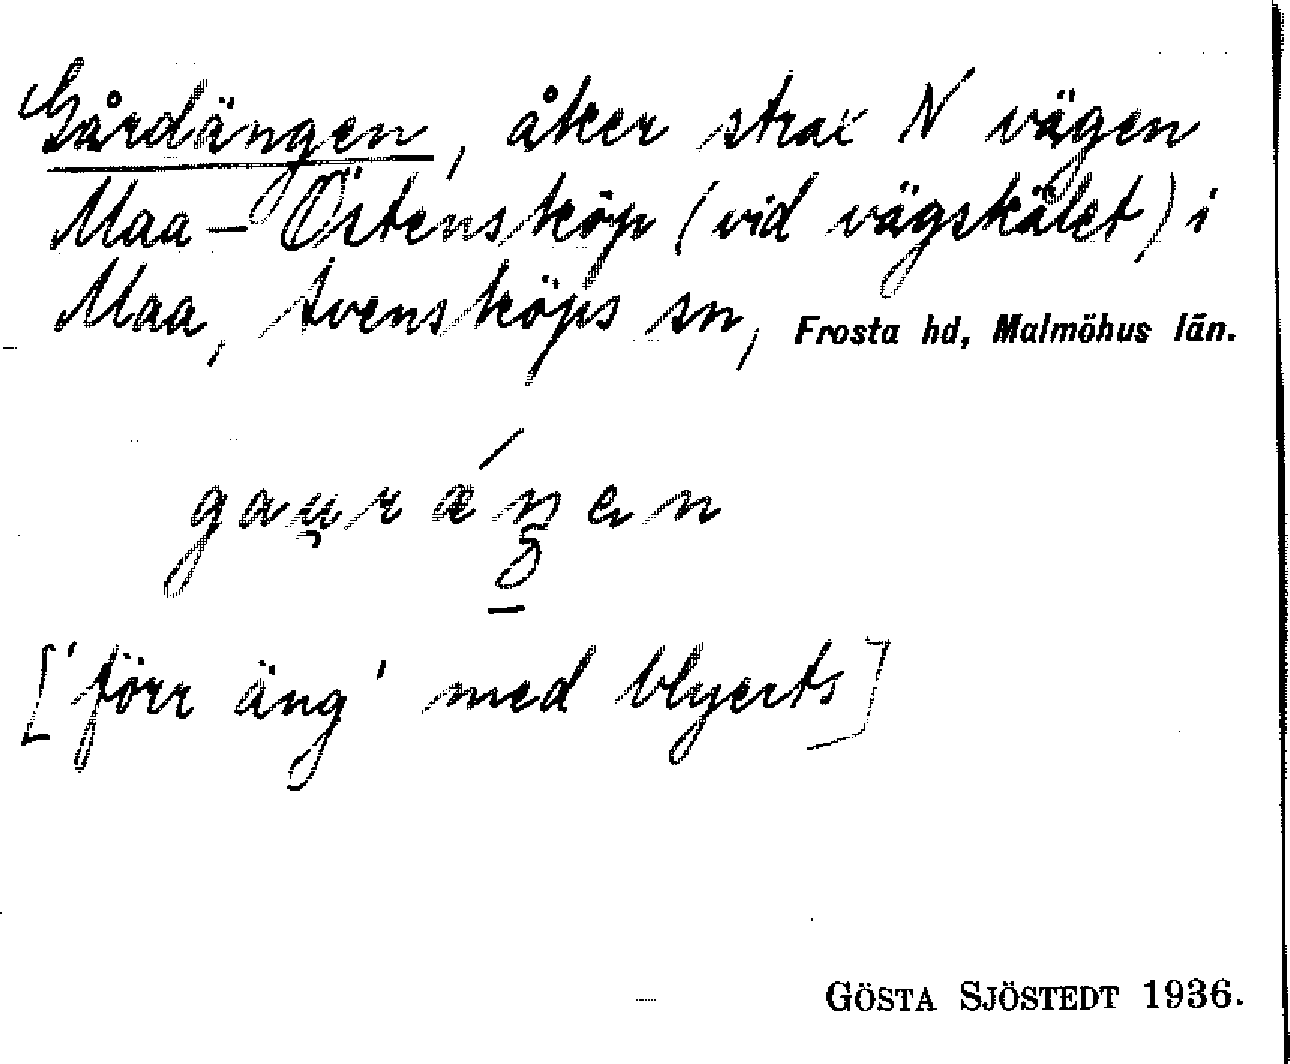 Gårdängen, åker strax N vägen
Maa – Östensköp (vid vägskälet) i
Maa, Svensköps sn, Frosta hd, Malmöhus län.
gau̯rǽŋen
['förr äng' med blyerts]
GÖSTA SJÖSTEDT 1936.